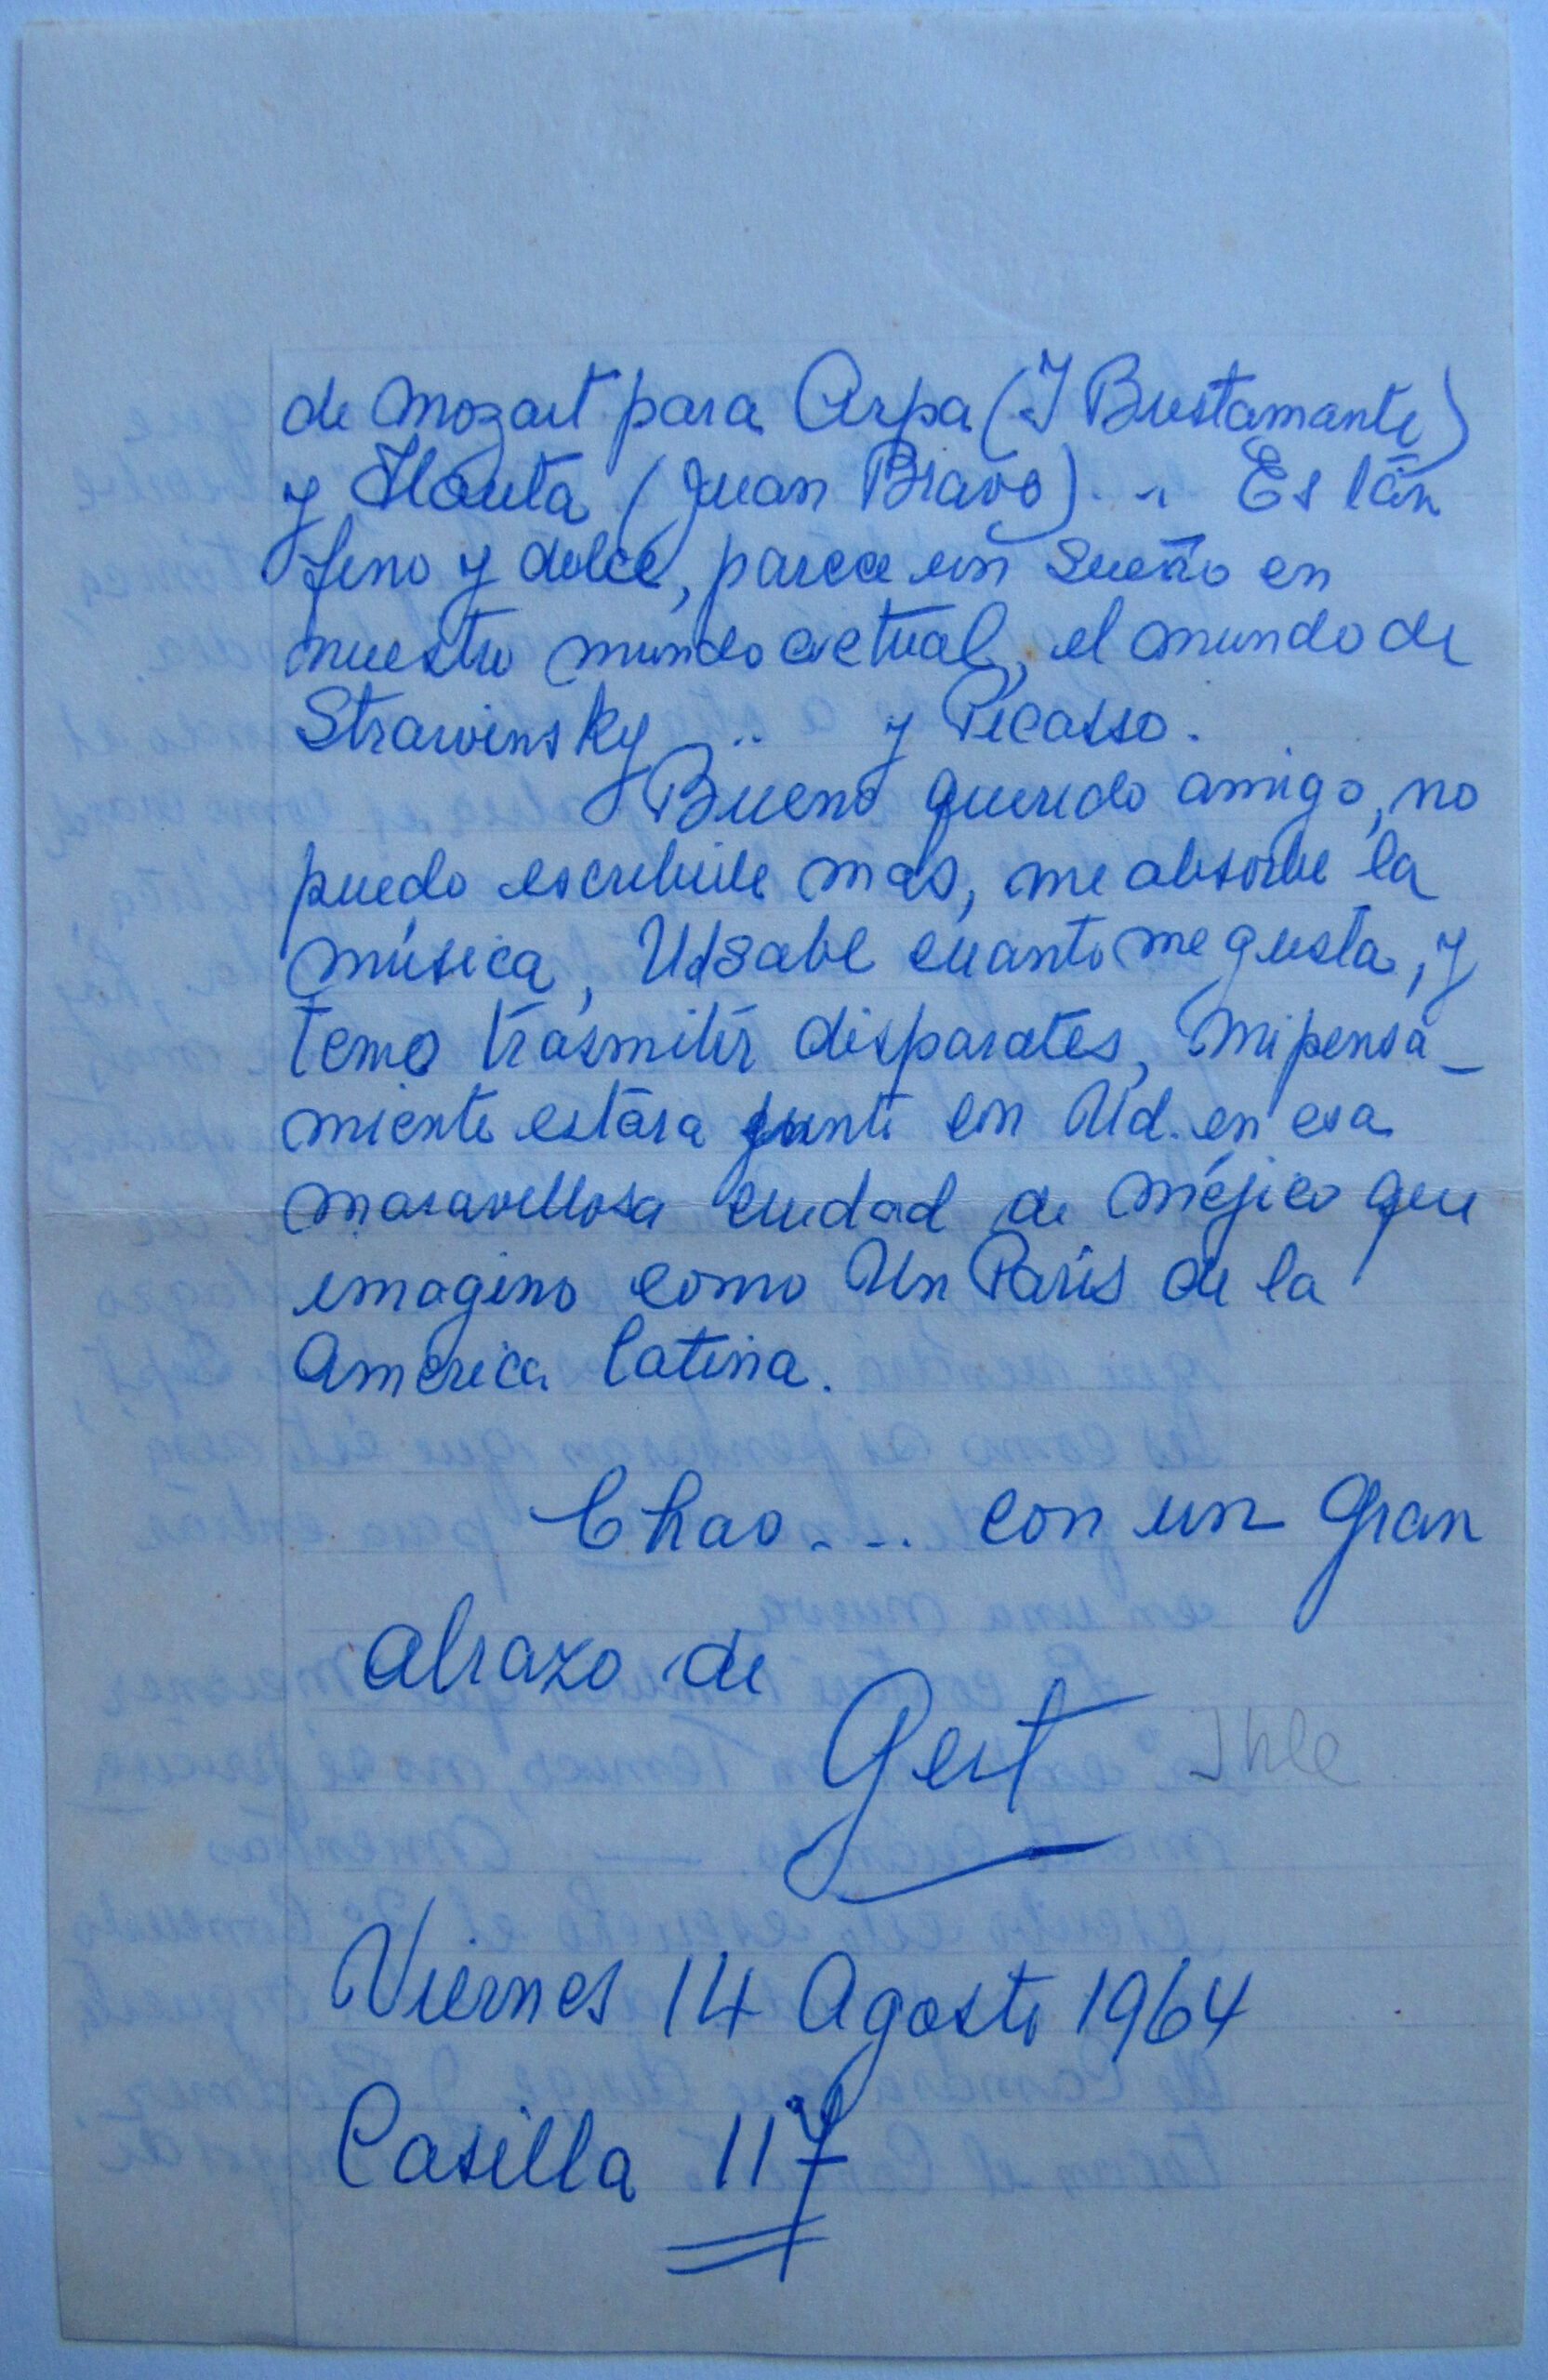 de Mozart para Arpa (J Bustamante)
y Flauta (Juan Bravo). .. Es tán
fino y dolce, parece un sueño en
nuestro mundo actual, el mundo de
Strawinsky .. y Picasso.
Bueno querido amigo, no
puedo escribirle mas, me absorbe la
música, Ud sabe cuanto me gusta, y
temo trasmitir disparates, mi pensa-
miento estára junto con Ud. en esa
maravillosa ciudad de Méjico que
imagino como Un París de la
America latina.
Chao.... con un Gran
abrazo de
Gert Ihle
Viernes 14 Agosto 1964
Casilla 117